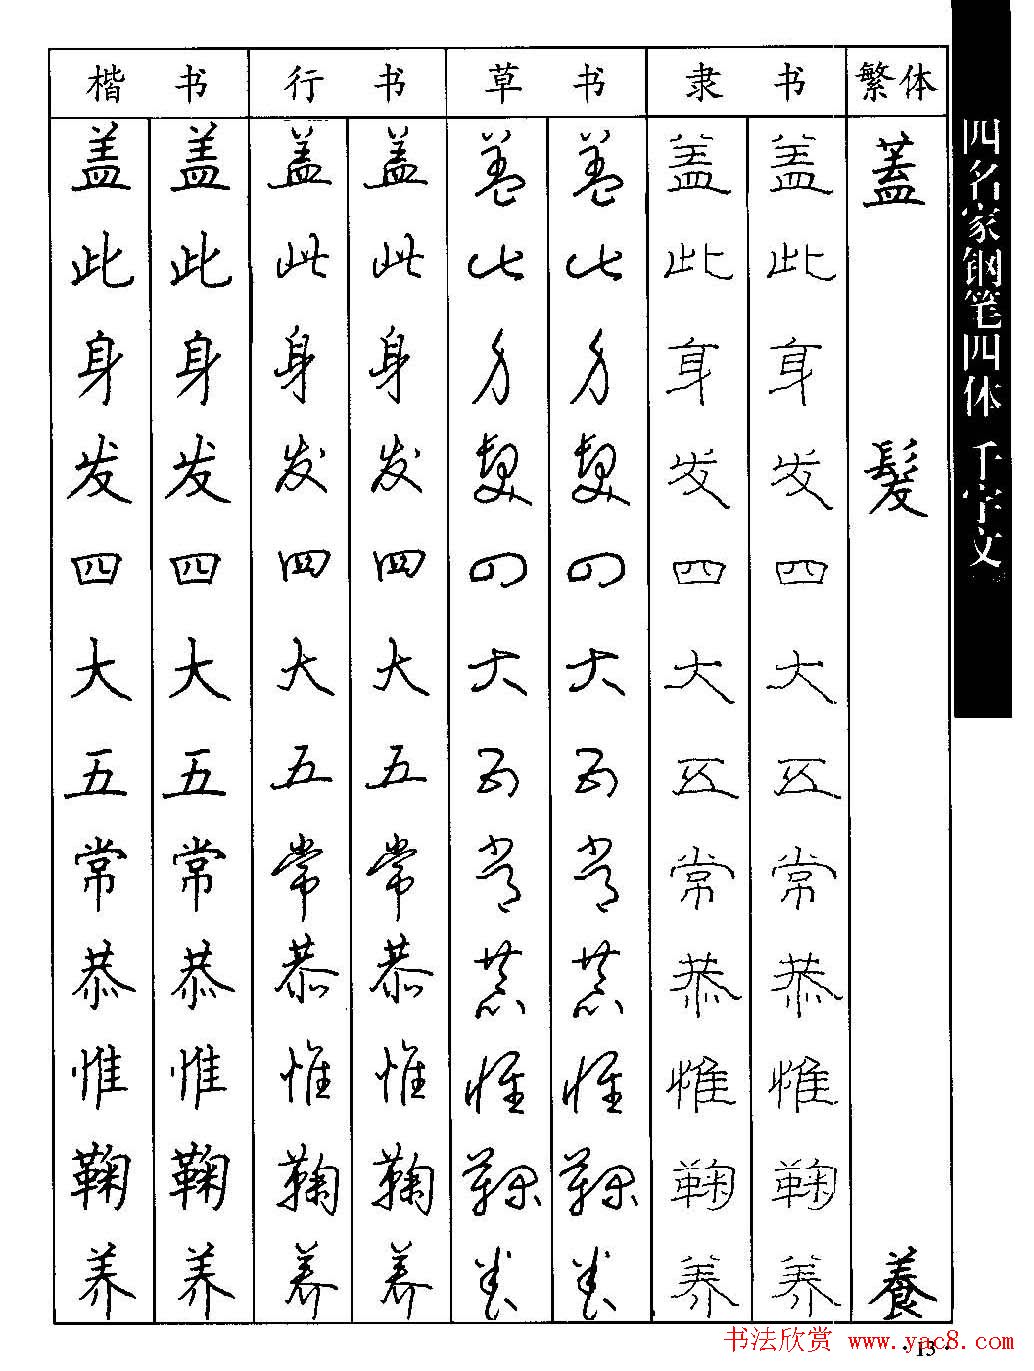 楷书 行书 草书 隶书 繁体
盖 盖 盖 盖 盖 盖 盖 盖 蓋
此 此 此 此 此 此 此 此
身 身 身 身 身 身 身 身
发 发 发 发 发 发 发 发 髮
四 四 四 四 四 四 四 四
大 大 大 大 大 大 大 大
五 五 五 五 五 五 五 五
常 常 常 常 常 常 常 常
恭 恭 恭 恭 恭 恭 恭 恭
惟 惟 惟 惟 惟 惟 惟 惟
鞠 鞠 鞠 鞠 鞠 鞠 鞠 鞠
养 养 养 养 养 养 养 养 養
四名家钢笔四体 千字文
书法欣赏 www.yac8.com
·13·